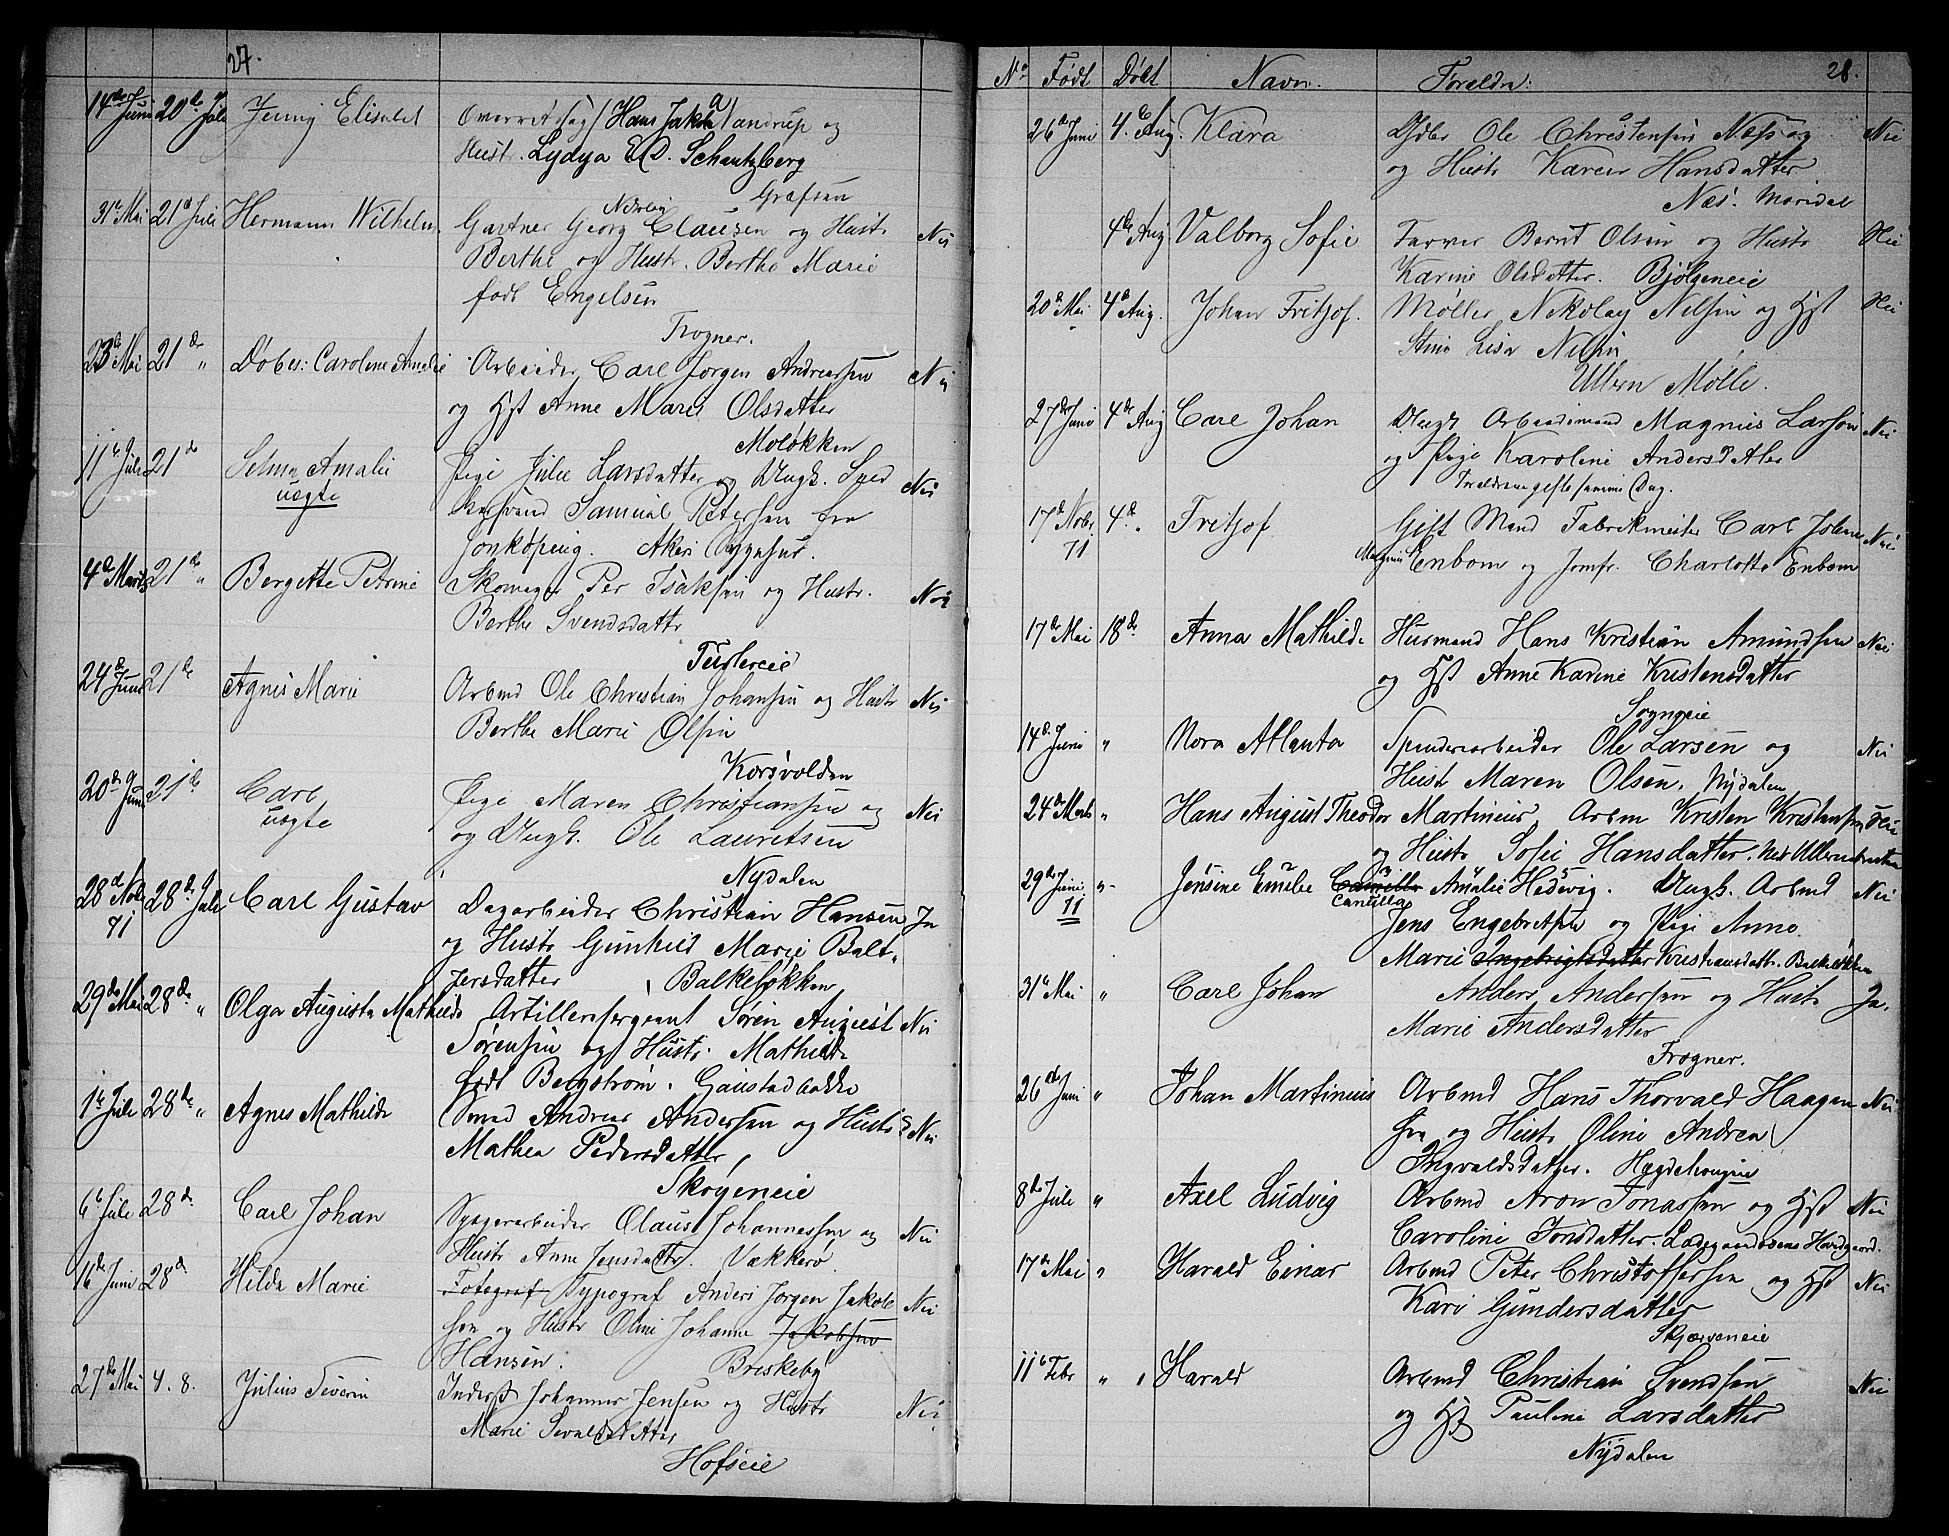 27.
14de Juni 20de Juli Jenny Elisabet Overretssag Hans Jakob Tandrup og
Hustr. Lydya E.D. Schantzberg
Grafsen
31te Mai 21de Juli Hermann Wilhelm. Gartner Georg Clausen og Hustr Nei
Berthe og Hustr. Berthe Marie
født Engelsen
Frogner.
23de Mai 21de " Døbes: Caroline Amalie Arbeider Carl Jørgen Andreassen Nei
og Hst Anne Marie Olsdatter
Moløkken
11te Juli 21de Selma Amalie Pige Julie Larsdatter og Ungk. Nei
uægte Samuel Petersen fra
Jonköping. Akers Sygehus.
4de Marts 21de " Bergette Petrine Skomager Per Isaksen og Hustr. Nei
Berthe Svendsdattr
24de Juni 21de Agnes Marie Arbmd Ole Christian Johansen og Hustr Nei
Berthe Marie Olsen
Korsvolden
20de Juni 21de Carl Pige Maren Christiansen og Nei
uægte og Ungk. Ole Lauretsen
Nydalen
28de Nobr 28de Juli Carl Gustav Dagarbeider Christian Hansen Ja
71 og Hustr Gunhild Marie Balt-
zersdatter Balkeløkken
29de Mai 28de " Olga Augusta Mathilde Artillerisergeant Søren August Nei
Sørensen og Hustr. Mathilde
født Bergstrøm. Gaustadbakke
1te Juli 28de " Agnes Mathilde Smed Andreas Andersen og Hustr Nei
Mathea Pedersdatter,
Skøyeneie
6te Juli 28de Carl Johan Olaus Johannessen og Nei
Hustr Anne Jensdattr. Vækkerø
16de Juni 28de Hilda Marie Fotograf Typograf Anders Jørgen Jakob Nei
sen og Hustr Oline Johanne Jakobsen
Hansen. Briskeby
27de Mai 4. 8. Julius Severin Inderst Johannes Jensen og Hustr Nei
Marie Sevaldsdatter
Hofseie
28.
No Født Døbt Navn. Forældre:
26de Juni 4de Aug. Klara Gdbr Ole Christensen Næss og Nei
og Hustr Karen Hansdatter
Næs. Maridal
4de Aug Valborg Sofie Farver Bernt Olsen og Hustr Nei
Karine Olsdatter. Bjølseneie
20de Mai 4de Aug. Johan Fritjof. Møller Nikolay Nilsen og Hst Nei
Stina Lisa Nilsen
Ullern Mølle.
27de Juni 4de Aug Carl Johan Ungk Arbeidsmand Magnus Larson Nei
og Pige Karoline Andersdatter
Forældrene gifte samme Dag.
17de Nobr. 4de " Fritjof Gift Mand Fabrikmester Carl Johan Nei
71 Magnus Enbom og Jomfr. Charlotte Enbom
17de Mai 18de Anna Mathilde Husmand Hans Kristian Amundsen Nei
og Hst Anne Karine Kristensdatter
Sogneie
14de Juni " Nora Atlanta Spinderiarbeider Ole Larsen og Nei
Hustr Maren Olsen. Nydalen
24de Marts " Hans August Theodor Martinius Arbm Kristen Kristensen Nei
og Hustr Sofie Hansdatter.
29de Juni " Jensine Emelie Camilla Amalie Hedevig. Ungk. Arbmd Nei
71 Camilla Jens Engebretsen og Pige Anne
Marie Ingebrigtsdatter Kristiansdatt. Balkeløkken
31te Mai " Carl Johan Anders Andersen og Hustr Ja.
Marie Andersdatter
Frogner.
26de Juni " Johan Martinius Arbmd Hans Thorvald Haagen Nei
sen og Hustr Oline Andrea
Ingvaldsdatter.
8de Juli " Axel Ludvig Arbmd Aron Jonassen og Hst Nei
Caroline Jonsdatter. Ladegaardsøens Hovedgaard.
17de Mai " Harald Einar Arbmd Peter Christoffersen og Hst Nei
Kari Gundersdatter
Skjærveneie
11te Febr " Harald Arbmd Christian Svendsen Nei
og Hst Pauline Larsdatter
Nydalen